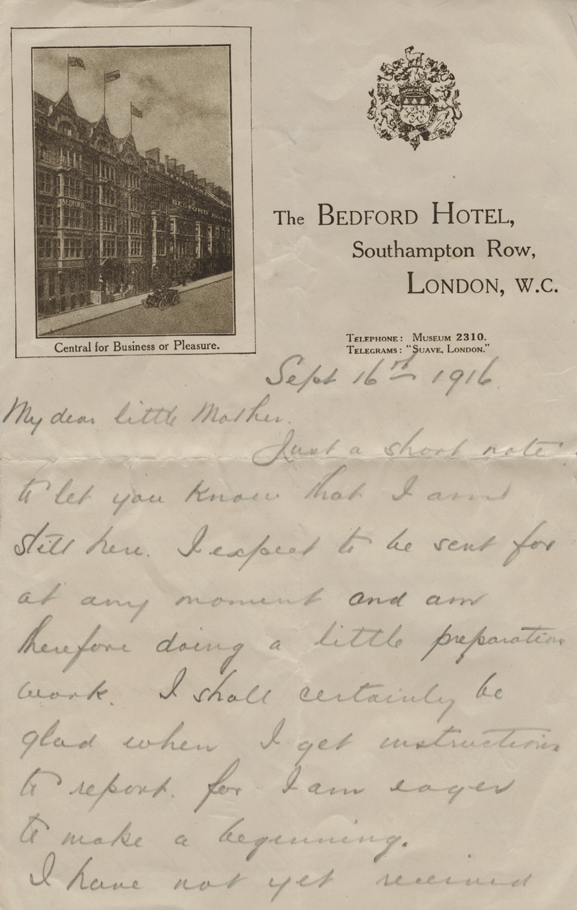 The BEDFORD HOTEL,
Southampton Row,
LONDON, W.C.
TELEPHONE: MUSEUM 2310.
TELEGRAMS: "SUAVE, LONDON."
BEDFORD
Central for Business or Pleasure.
Sept 16th 1916.
My dear little Mother.
Just a short note
to let you know that I am
still here. I expect to be sent for
at any moment and am
therefore doing a little preparation
work. I shall certainly be
glad when I get instructions
to report. for I am eager
to make a beginning.
I have not yet received